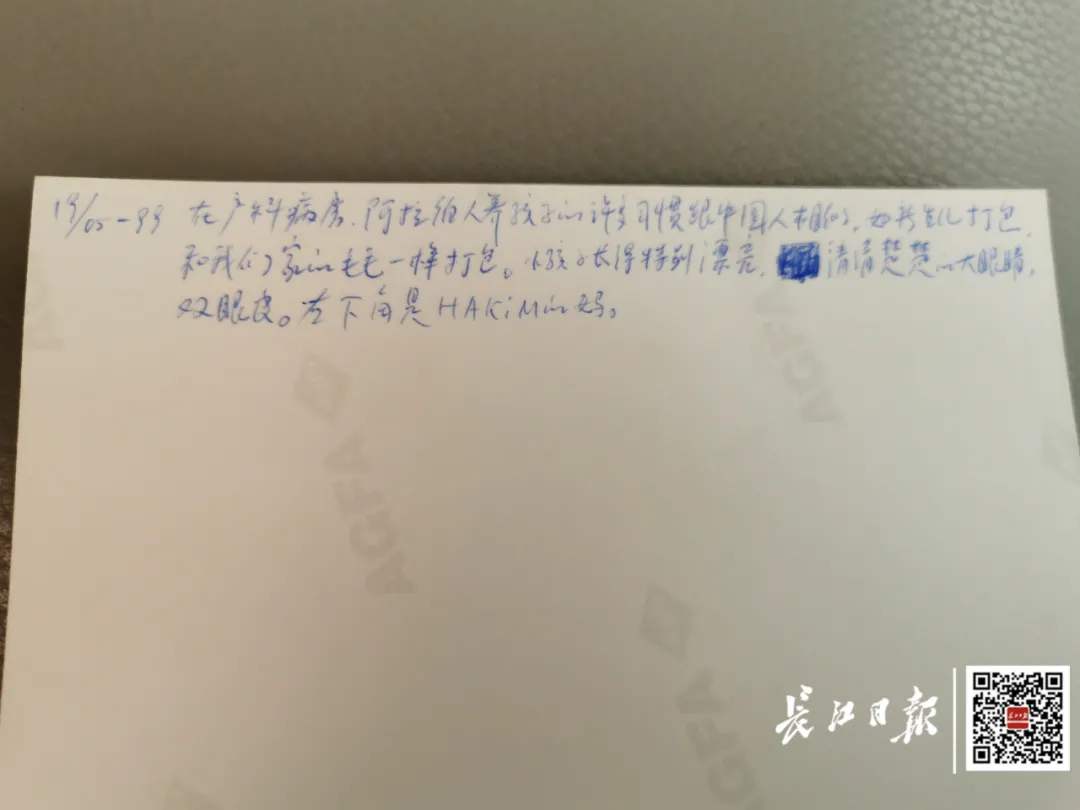 19/05-99 在产科病房.阿拉伯人养孩子的许多习惯跟中国人相似,如新生儿打包,
和我们家的毛毛一样打包。小孩子长得特别漂亮, 清清楚楚的大眼睛,
双眼皮。左下角是HAKiM的妈。
AGFA
AGFA
AGFA
长江日报